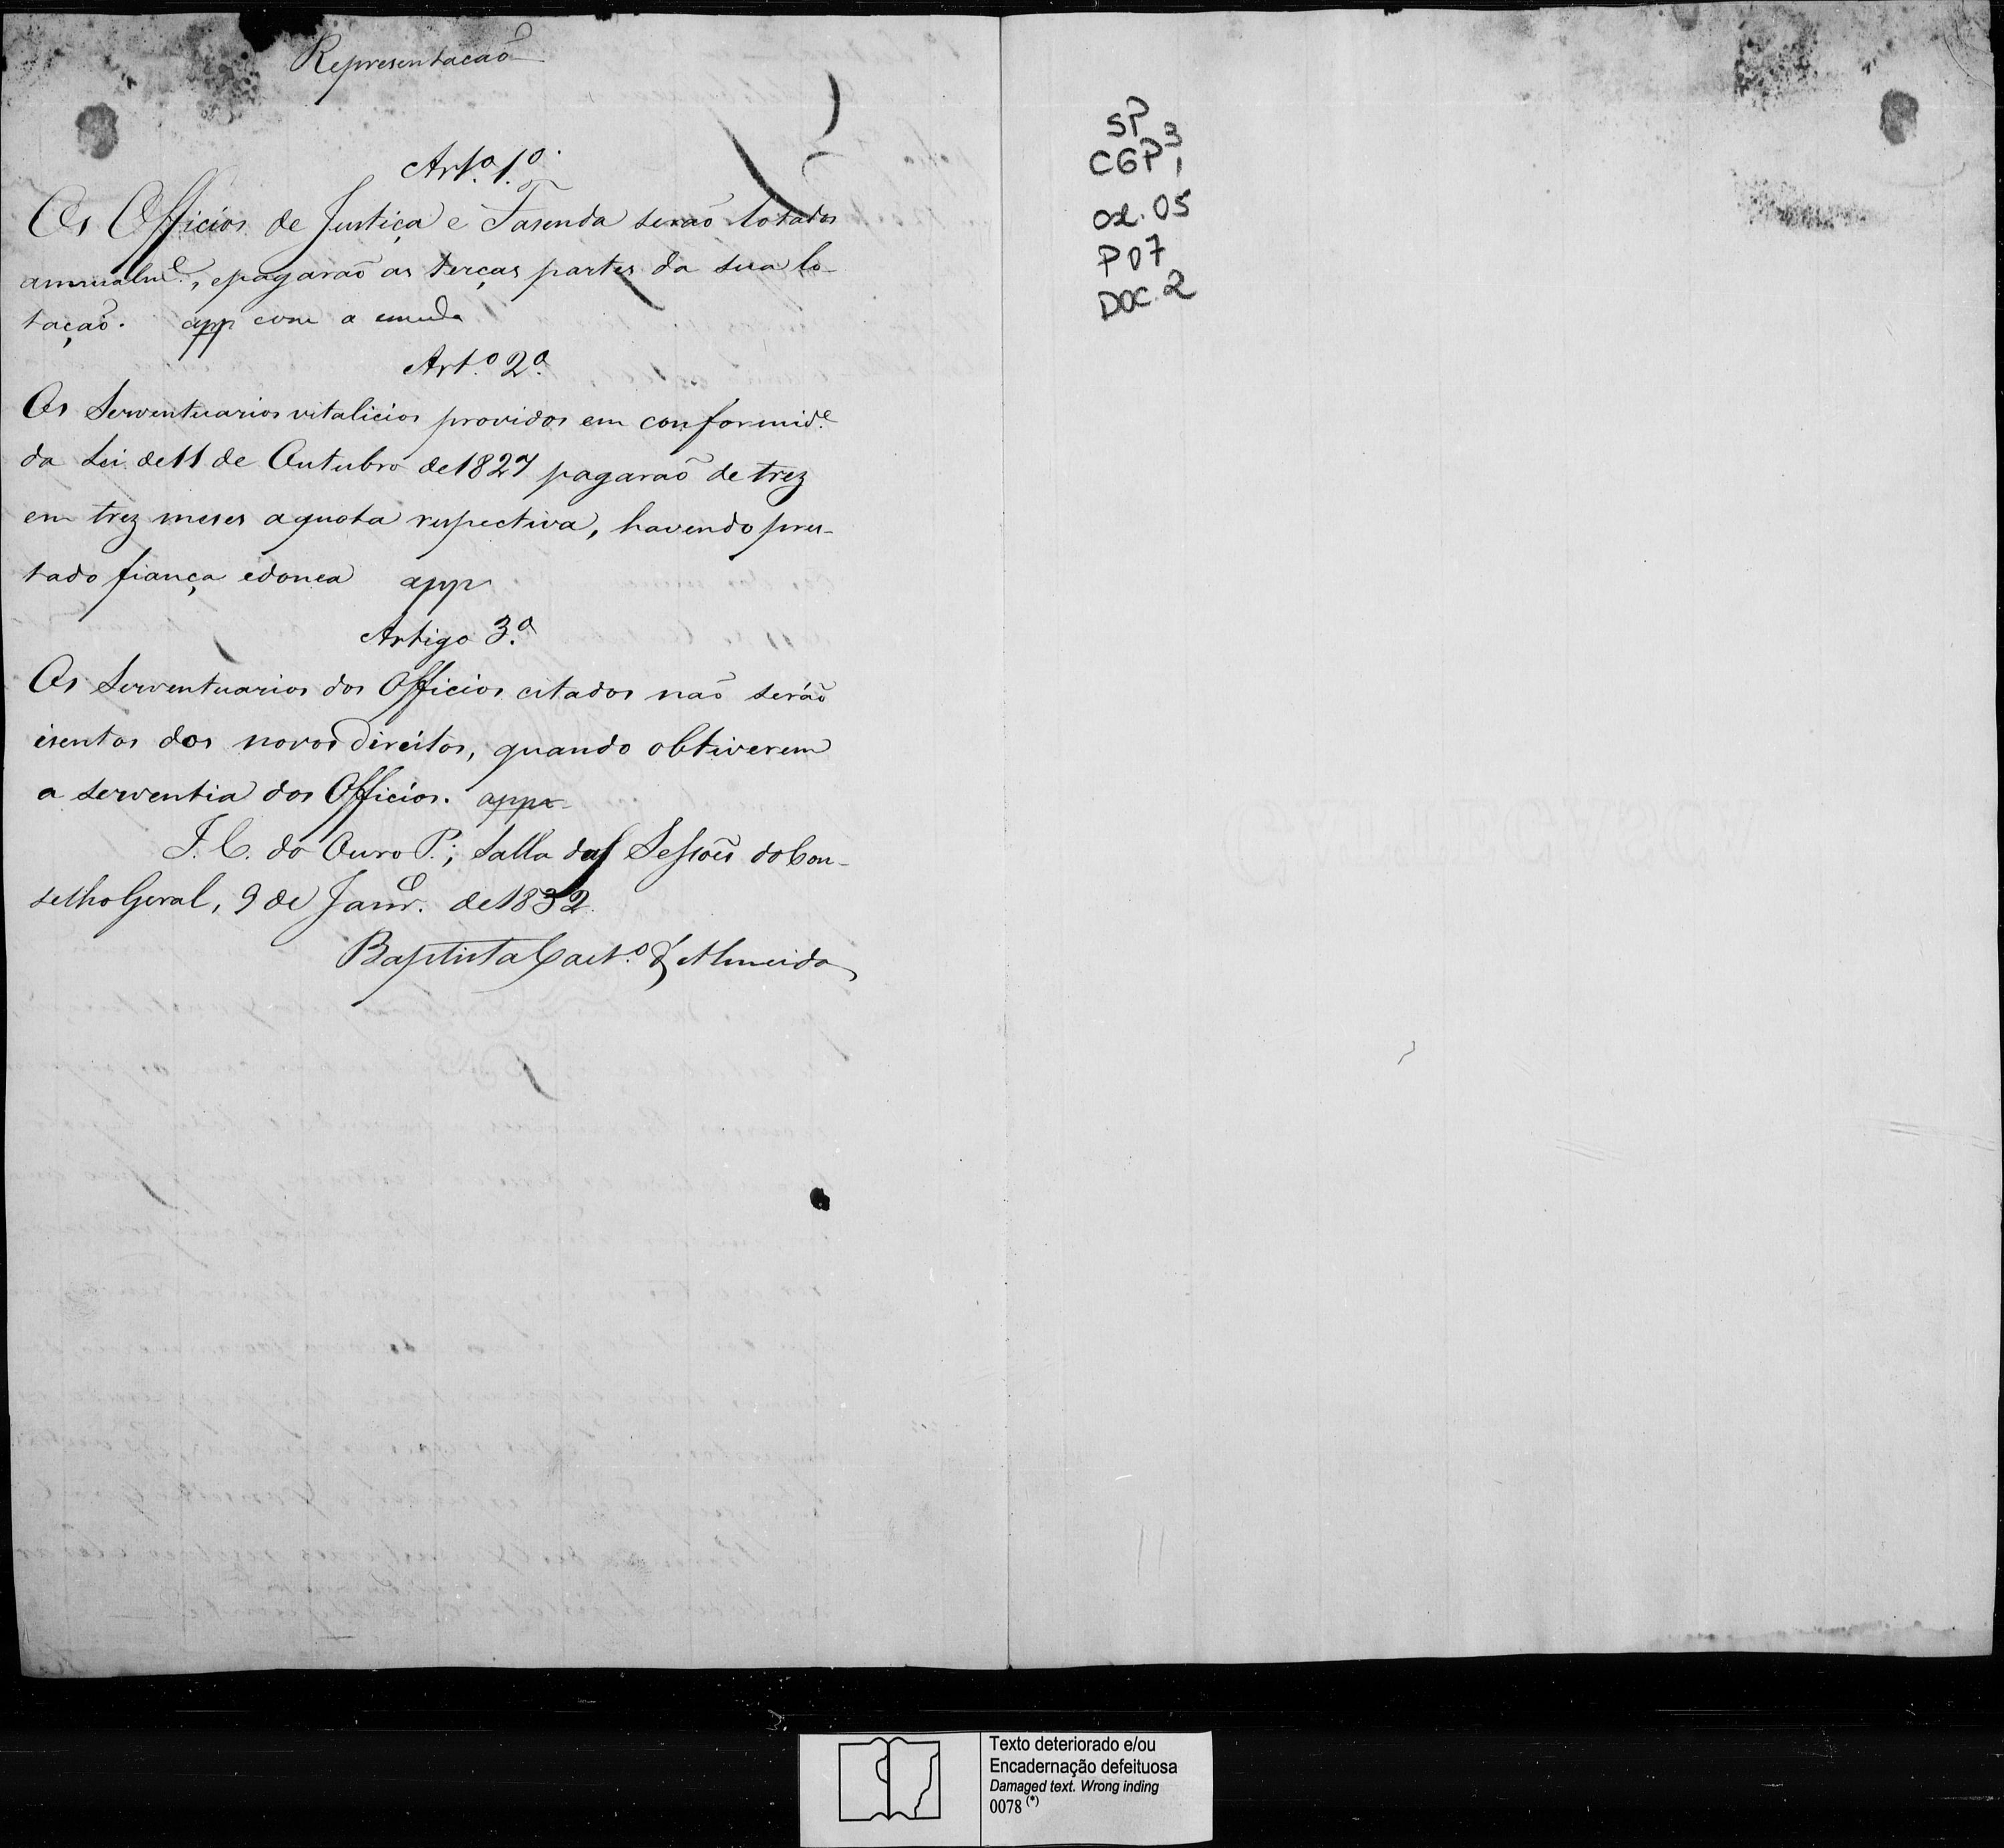 Representacaõ
Art.º 1.º
Os Officios de Justiça e Fasenda seraõ lotados
annualm.e, epagaraõ as terças partes da sua lo-
taçaõ. app com a emenda
Art.º 2.º
Os Serventuarios vitalicios providos em conformid.e
da Lei de 11 de Outubro de 1827 pagaraõ de trez
em trez meses aquota respectiva, havendo pres-
tado fiança edonea app
Artigo 3.º
Os Serventuarios dos Officios citados naõ seraõ
isentos dos novos direitos, quando obtiverem
a serventia dos Officios. app
I. C. do Ouro P.; Salla das Sessões do Con-
selho Geral, 9 de Janr.º de 1832.
Baptista Caet.º d'Almeida
SP
CGP 3
1
cx. 05
P 07
DOC. 2
Texto deteriorado e/ou
Encadernação defeituosa
Damaged text. Wrong inding
0078 (*)